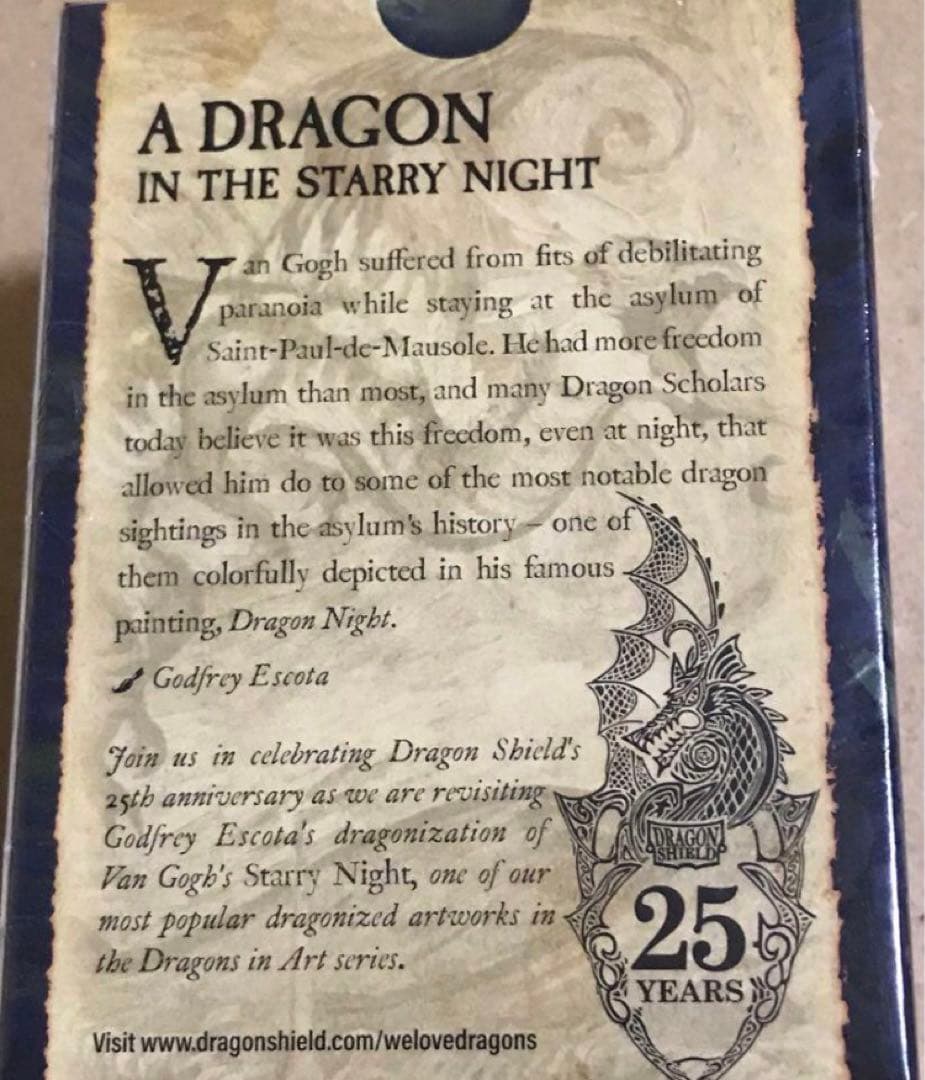 A DRAGON
IN THE STARRY NIGHT
Van Gogh suffered from fits of debilitating
paranoia while staying at the asylum of
Saint-Paul-de-Mausole. He had more freedom
in the asylum than most, and many Dragon Scholars
today believe it was this freedom, even at night, that
allowed him do to some of the most notable dragon
sightings in the asylum's history – one of
them colorfully depicted in his famous
painting, Dragon Night.
Godfrey Escota
Join us in celebrating Dragon Shield's
25th anniversary as we are revisiting
Godfrey Escota's dragonization of
Van Gogh's Starry Night, one of our
most popular dragonized artworks in
the Dragons in Art series.
DRAGON
SHIELD
25
YEARS
Visit www.dragonshield.com/welovedragons